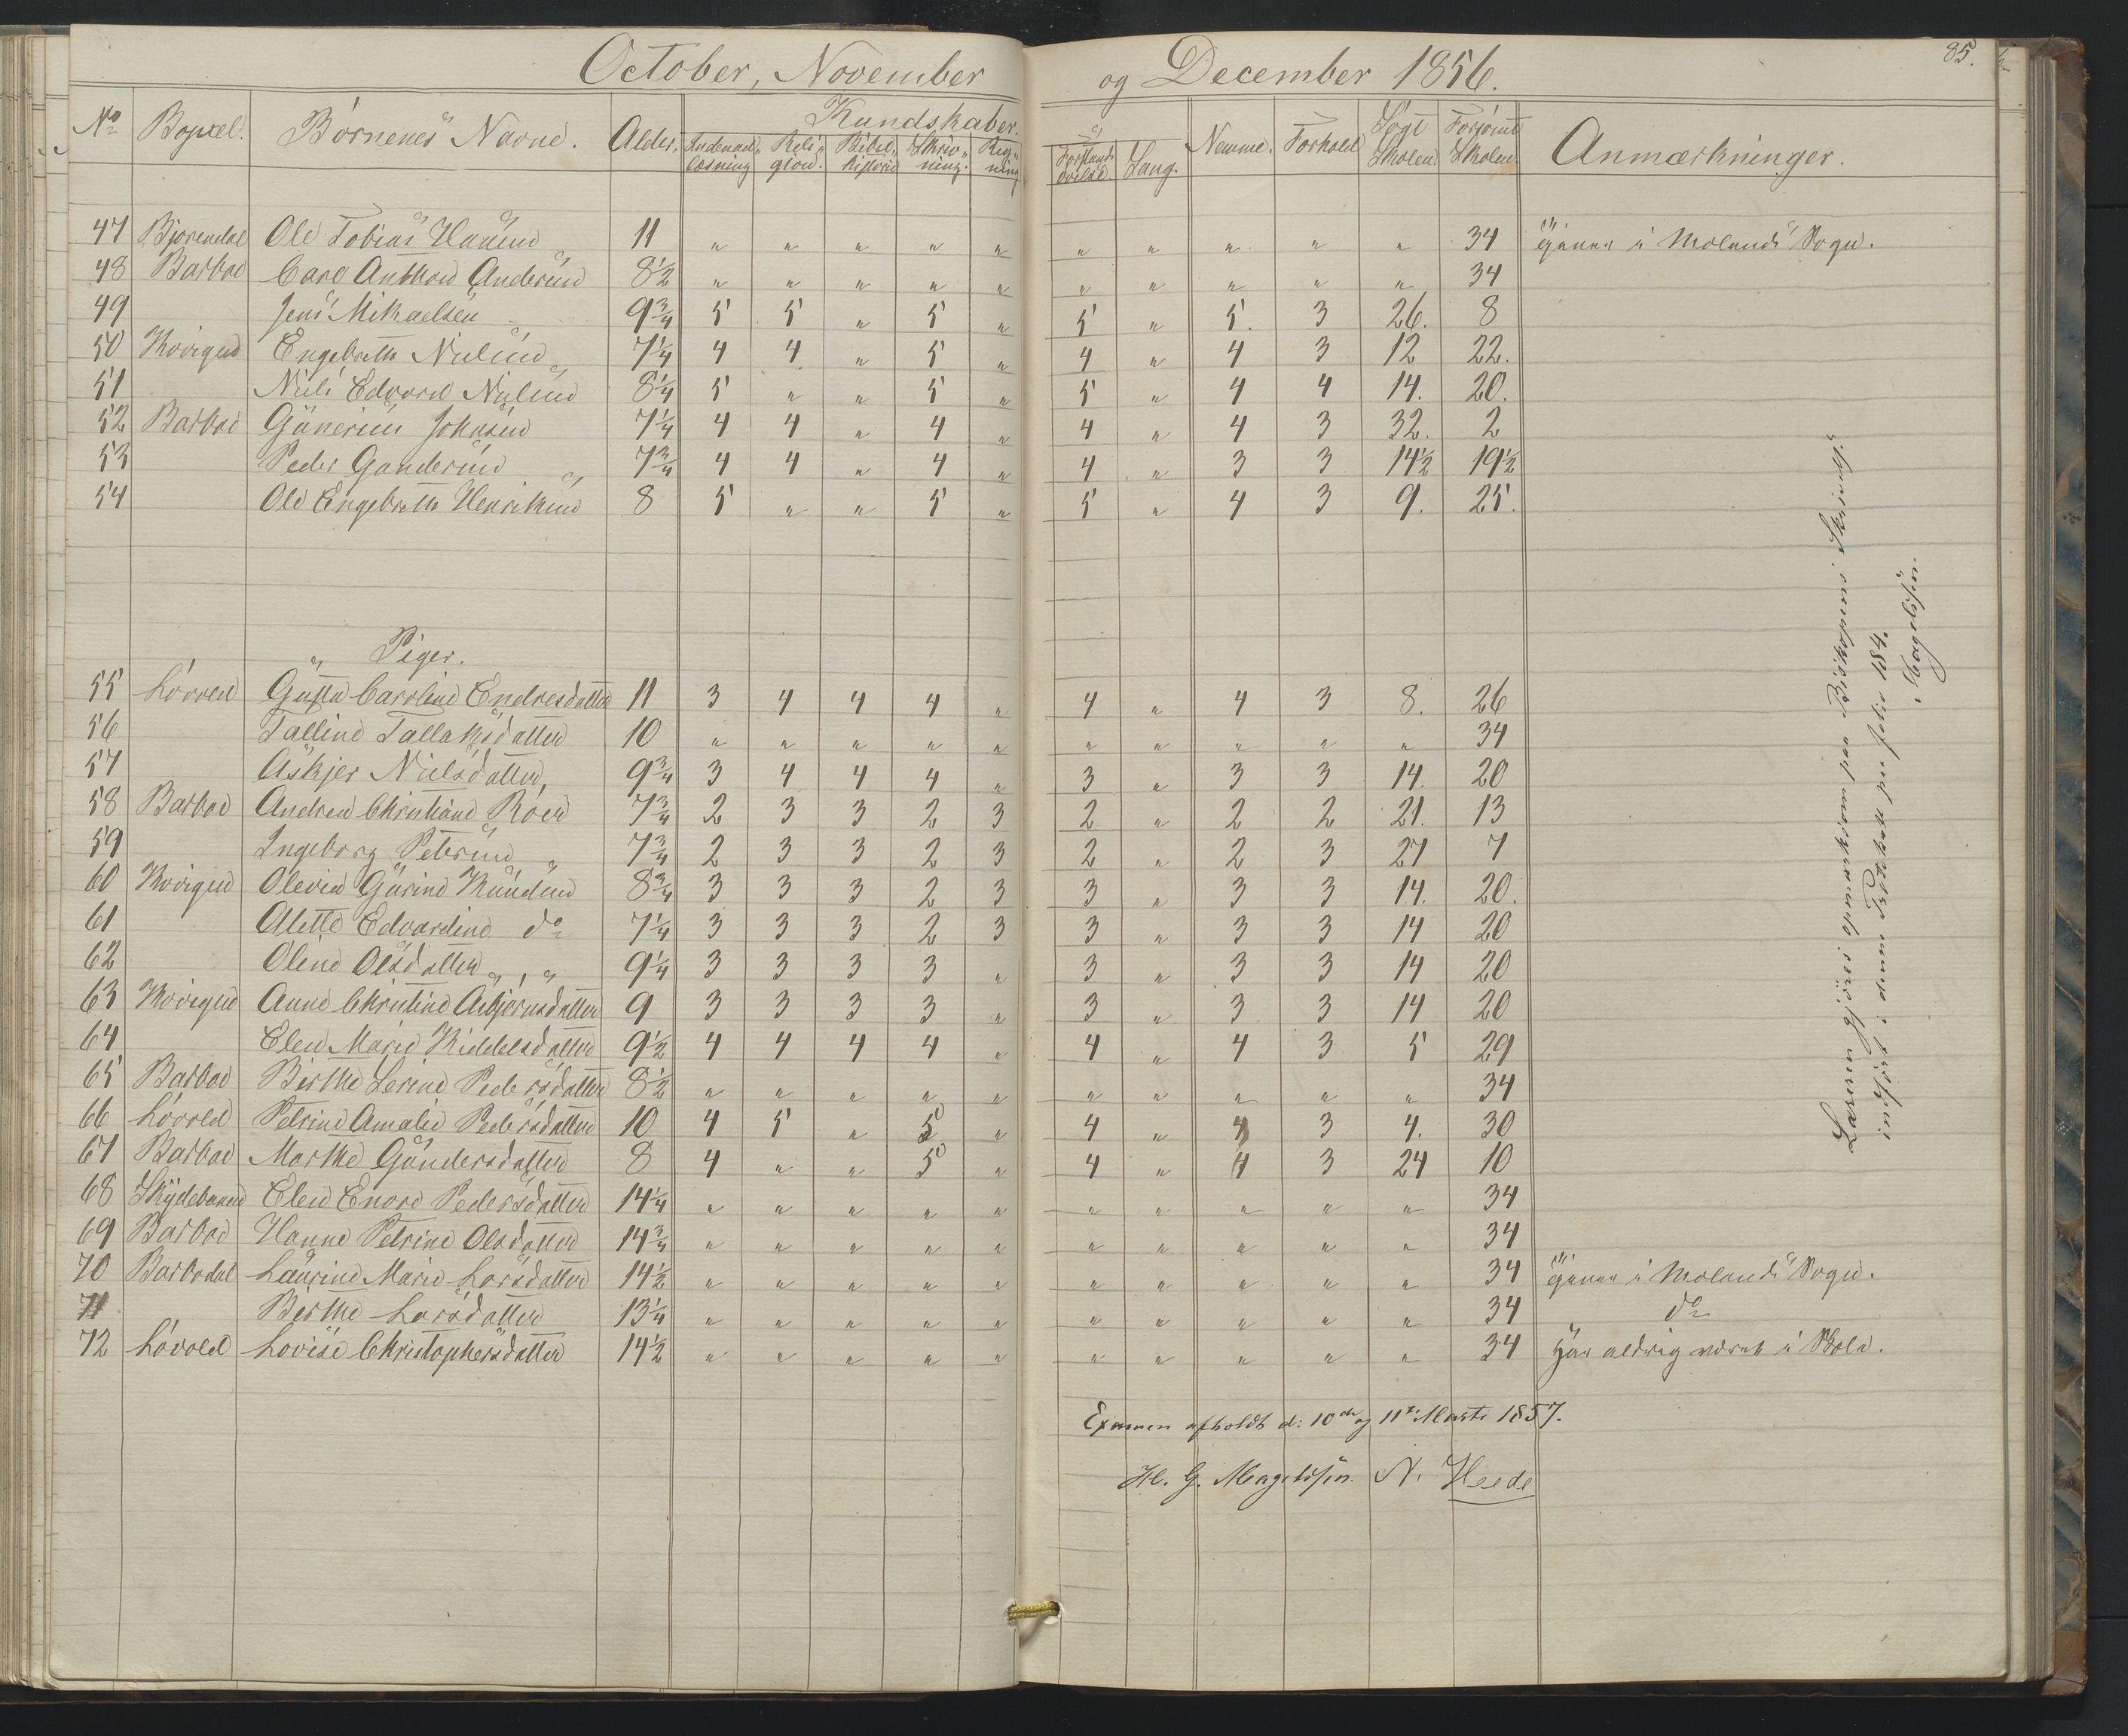 85.
October, November og December 1856.
No Bopæl. Börnenes Navne. Alder. Kundskaber. Nemme. Forhold Søgt Skolen. Forsømt Skolen. Anmærkninger.
Indenad-læsning Reli-gion. Bibel-historie Skriv-ning. Reg-ning Forstands-øvelse Sang.
47 Bjorendal Ole Tobias Hansen 11 " " " " " " " " " " 34 Gaaer i Molands Sogn.
48 Barboe Carl Anthon Andersen 8½ " " " " " " " " " " 34
49 Jens Mikaelsen 9¾ 5 5 " 5 " 5 " 5. 3 26. 8
50 Kvigud Engebreth Nielsen 7¼ 4 4 " 5 " 4 " 4 3 12 22.
51 Niels Edvard Nielsen 8¼ 5 " " 5 " 5 " 4 4 14. 20.
52 Barboe Gunerius Johnsen 7¼ 4 4 " 4 " 4 " 4 3 32. 2
53 Peder Gundersen 7¾ 4 4 " 4 " 4 " 3 3 14½ 19½
54 Ole Engebreth Henriksen 8 5 " " 5 " 5 " 4 3 9. 25.
Piger.
55 Lövold Gusta Caroline Endresdatter 11 3 4 4 4 " 4 " 4 3 8. 26
56 Talline Tallaksdatter 10 " " " " " " " " " " 34
57 Askjer Nielsdatter 9¾ 3 4 4 4 " 3 " 3 3 14. 20
58 Barboe Andrea Christiane Röed 7¾ 2 3 3 2 3 2 " 2 2 21. 13
59 Ingeborg Petersen 7¾ 2 3 3 2 3 2 " 2 3 27 7
60 Kvigud Olevia Gurine Knudsen 8¾ 3 3 3 2 3 3 " 3 3 14. 20.
61 Alette Edvardine do 7¼ 3 3 3 2 3 3 " 3 3 14 20
62 Oline Olsdatter 9¼ 3 3 3 3 " 3 " 3 3 14 20
63 Kvigud Anne Christine Asbjørnsdatter 9 3 3 3 3 " 3 " 3 3 14 20
64 Elen Marie Kiddelsdatter 9½ 4 4 4 4 " 4 " 4 3 5 29
65 Barboe Birthe Serine Pedersdatter 8½ " " " " " " " " " " 34
66 Lövold Petrine Amalie Pedersdatter 10 4 5 " 5 " 4 " 4 3 4. 30
67 Barboe Marthe Gundersdatter 8 4 " " 5 " 4 " 4 3 24 10
68 Elen Enore Pedersdatter 14¼ " " " " " " " " " " 34
69 Barboe Hanne Petrine Olsdatter 14¾ " " " " " " " " " " 34
70 Barbodal Laurine Marie Larsdatter 14½ " " " " " " " " " " 34 Gaaer i Molands Sogn.
71 Birthe Larsdatter 13¼ " " " " " " " " " " 34 do
72 Lövold Lovise Christophersdatter 14½ " " " " " " " " " " 34 Har aldrig været i Skole.
Examen afholdt d: 10de og 11te Marts 1857.
H. G. Magelssen. N. Heede
Læreren gjöres opmærksom paa Biskopens Skrivelse
indfört i denne Protokoll paa folio 184.
Magelssen.